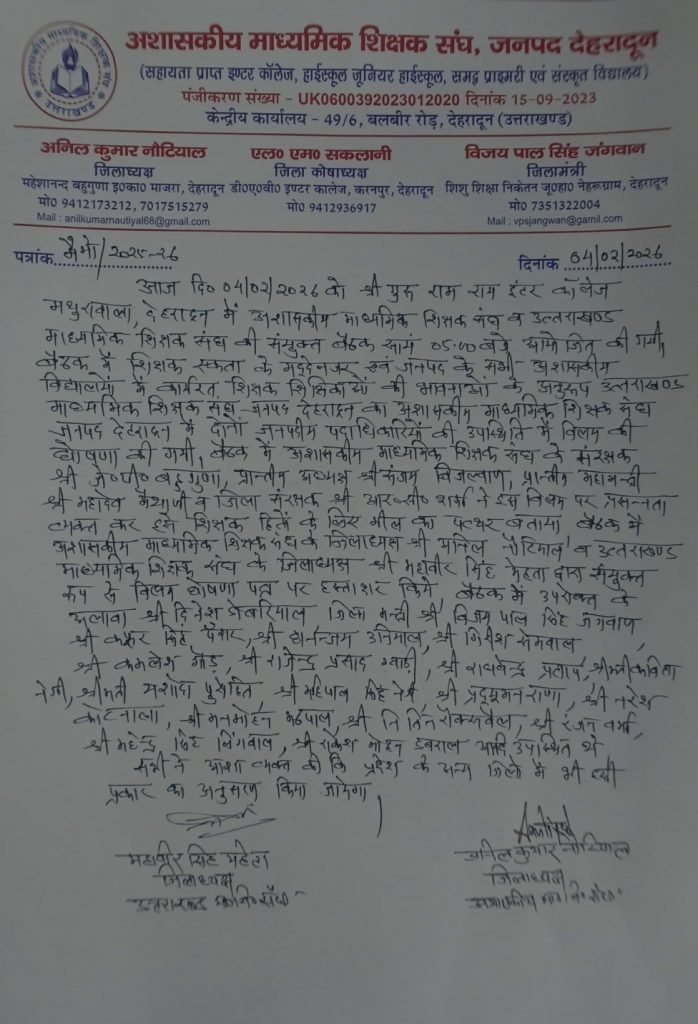 अशासकीय माध्यमिक शिक्षक संघ, जनपद देहरादून
(सहायता प्राप्त इण्टर कॉलेज, हाईस्कूल जूनियर हाईस्कूल, समद्व प्राइमरी एवं संस्कृत विद्यालय)
पंजीकरण संख्या - UK0600392023012020 दिनांक 15-09-2023
केन्द्रीय कार्यालय - 49/6, बलबीर रोड़, देहरादून (उत्तराखण्ड)
अशासकीय माध्यमिक शिक्षक संघ
उत्तराखण्ड
अनिल कुमार नौटियाल एल० एम० सकलानी विजय पाल सिंह जंगवान
जिलाध्यक्ष जिला कोषाध्यक्ष जिलामंत्री
महेशानन्द बहुगुणा इ०का० माजरा, देहरादून डी०ए०वी० इण्टर कालेज, करनपुर, देहरादून शिशु शिक्षा निकेतन जू०हा० नेहरूग्राम, देहरादून
मो० 9412173212, 7017515279 मो० 9412936917 मो० 7351322004
Mail : anilkumarnautiyal68@gmail.com Mail : vpsjangwan@gamil.com
पत्रांक मैमो/2025-26 दिनांक 04/02/2026
आज दि० 04/02/2026 को श्री गुरु राम राय इंटर कॉलेज
मथुरावाला, देहरादून में अशासकीय माध्यमिक शिक्षक संघ व उत्तराखण्ड
माध्यमिक शिक्षक संघ की संयुक्त बैठक सायं 05.00 बजे आयोजित की गयी,
बैठक में शिक्षक एकता के मद्देनजर एवं जनपद के सभी अशासकीय
विद्यालयों में कार्यरत शिक्षक शिक्षिकाओं की भावनाओं के अनुरूप उत्तराखण्ड
माध्यमिक शिक्षक संघ जनपद देहरादून का अशासकीय माध्यमिक शिक्षक संघ
जनपद देहरादून में दोनों जनपदीय पदाधिकारियों की उपस्थिति में विलय की
घोषणा की गयी, बैठक में अशासकीय माध्यमिक शिक्षक संघ के संरक्षक
श्री जे०पी० बहुगुणा, प्रान्तीय अध्यक्ष श्री संजय बिजल्वाण, प्रान्तीय महामन्त्री
श्री महादेव मैठाणी व जिला संरक्षक श्री आर०सी० शर्मा ने इस विषय पर प्रसन्नता
व्यक्त कर इसे शिक्षक हितों के लिए मील का पत्थर बताया बैठक में
अशासकीय माध्यमिक शिक्षक संघ के जिलाध्यक्ष श्री अनिल नौटियाल व उत्तराखण्ड
माध्यमिक शिक्षक संघ के जिलाध्यक्ष श्री महावीर सिंह मेहता द्वारा संयुक्त
रूप से विलय घोषणा पत्र पर हस्ताक्षर किये बैठक में उपरोक्त के
अलावा श्री दिनेश डोबरियाल जिला मन्त्री श्री विजय पाल सिंह जंगवाण
श्री सिंह पंवार, श्री धनन्जय उनियाल, श्री गिरीश सेमवाल,
श्री कमलेश गौड़, श्री राजेन्द्र प्रसाद, श्री राघवेन्द्र प्रताप, श्रीमती कविता
नेगी, श्रीमती यशोदा पुरोहित, श्री महिपाल सिंह नेगी, श्री प्रद्युमन राणा, श्री नरेश
कोटनाला, श्री मनमोहन मढपाल, श्री नितिन रौक्सवेल, श्री रंजन वर्मा,
श्री महेन्द्र सिंह लिंगवाल, श्री राकेश मोहन डबराल आदि उपस्थित थे
सभी ने आशा व्यक्त की कि प्रदेश के अन्य जिलों में भी इसी
प्रकार का अनुसरण किया जायेगा।
महावीर सिंह मेहता अनिल कुमार नौटियाल
जिलाध्यक्ष जिलाध्यक्ष
उत्तराखण्ड मा०शि०संघ अशासकीय मा०शि०संघ